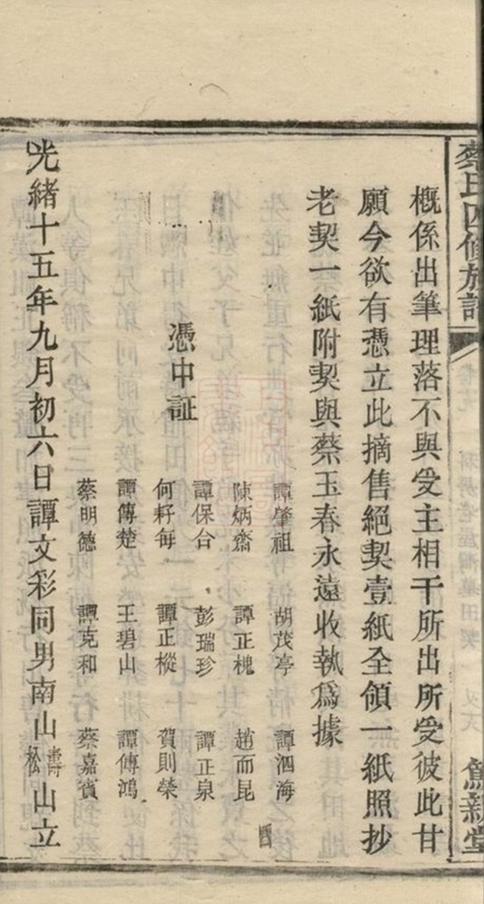 蔡氏四修族譜
篤親堂
概係出筆理落不與受主相干所出所受彼此甘
願今欲有憑立此摘售絕契壹紙全領一紙照抄
老契一紙附契與蔡玉春永遠收執爲據
譚肇祖 胡茂亭 譚泗海
陳炳齋 譚正槐 趙而昆
憑中証 譚保合 彭瑞珍 譚正泉
何籽每 譚正樅 賀則榮
譚傳楚 王碧山 譚傳鴻
蔡明德 譚克和 蔡嘉賓
光緒十五年九月初六日譚文彩同男南山壽松山立